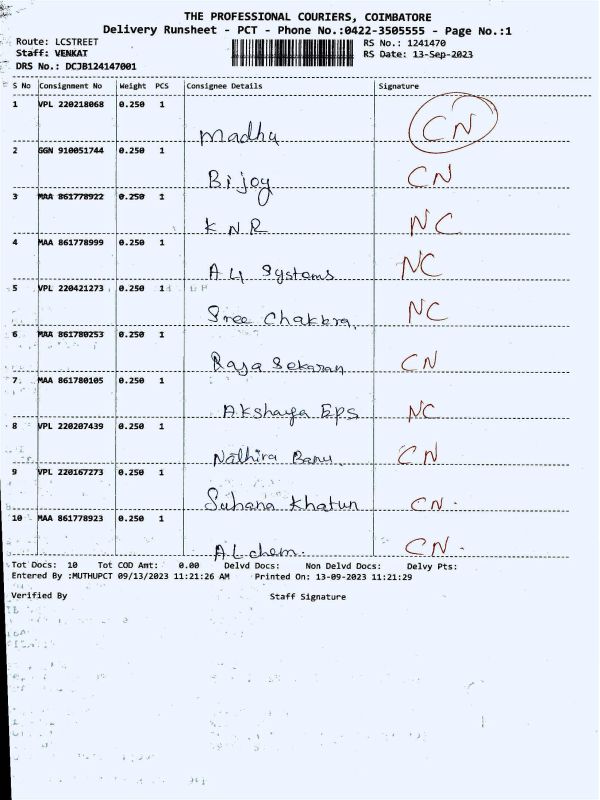 THE PROFESSIONAL COURIERS, COIMBATORE
Delivery Runsheet - PCT - Phone No.:0422-3505555 - Page No.:1
Route: LCSTREET RS No.: 1241470
Staff: VENKAT RS Date: 13-Sep-2023
DRS No.: DCJB124147001
S No Consignment No Weight PCS Consignee Details Signature
1 VPL 220218068 0.250 1
Madhu CN
2 GGN 910051744 0.250 1
Bijoy CN
3 MAA 861778922 0.250 1
K N R NC
4 MAA 861778999 0.250 1
A 4 Systems NC
5 VPL 220421273 0.250 1
Sree Chakkra, NC
6 MAA 861780253 0.250 1
Raja Sekaran CN
7 MAA 861780105 0.250 1
Akshaya Eps NC
8 VPL 220207439 0.250 1
Nathira Banu. CN
9 VPL 220167273 0.250 1
Suhana Khatun CN.
10 MAA 861778923 0.250 1
A L chem. CN.
Tot Docs: 10 Tot COD Amt: 0.00 Delvd Docs: Non Delvd Docs: Delvy Pts:
Entered By :MUTHUPCT 09/13/2023 11:21:26 AM Printed On: 13-09-2023 11:21:29
Verified By Staff Signature